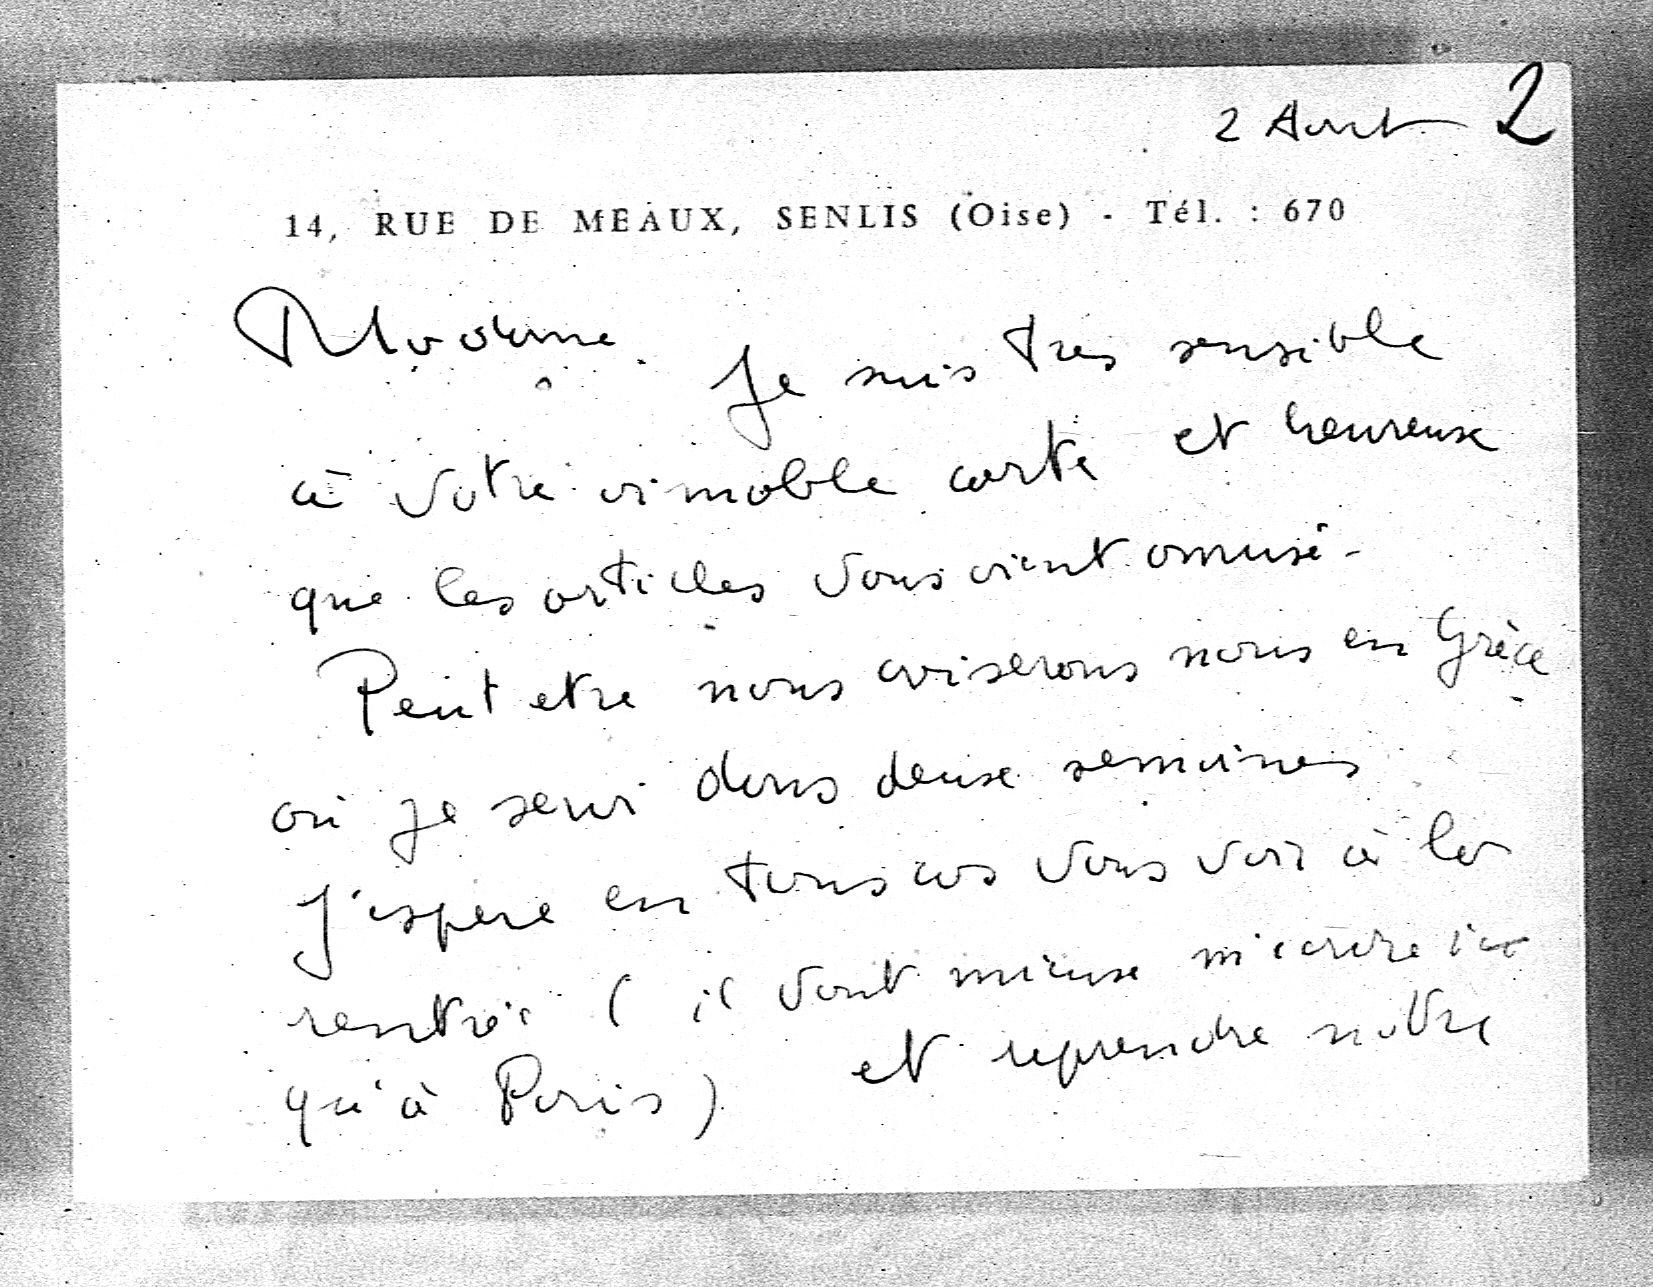 2 Aout 2
14, RUE DE MEAUX, SENLIS (Oise) - Tél. : 670
Madame. Je suis tres sensible
à votre aimable carte et heureuse
que les articles vous aient amusé -
Peut etre nous aviserons nous en Grèce
où je serai dans deux semaines
J'espere en tous cas vous voir à la
rentrée ( il vaut mieux m'ecrire ici
qu'à Paris) et reprendre notre